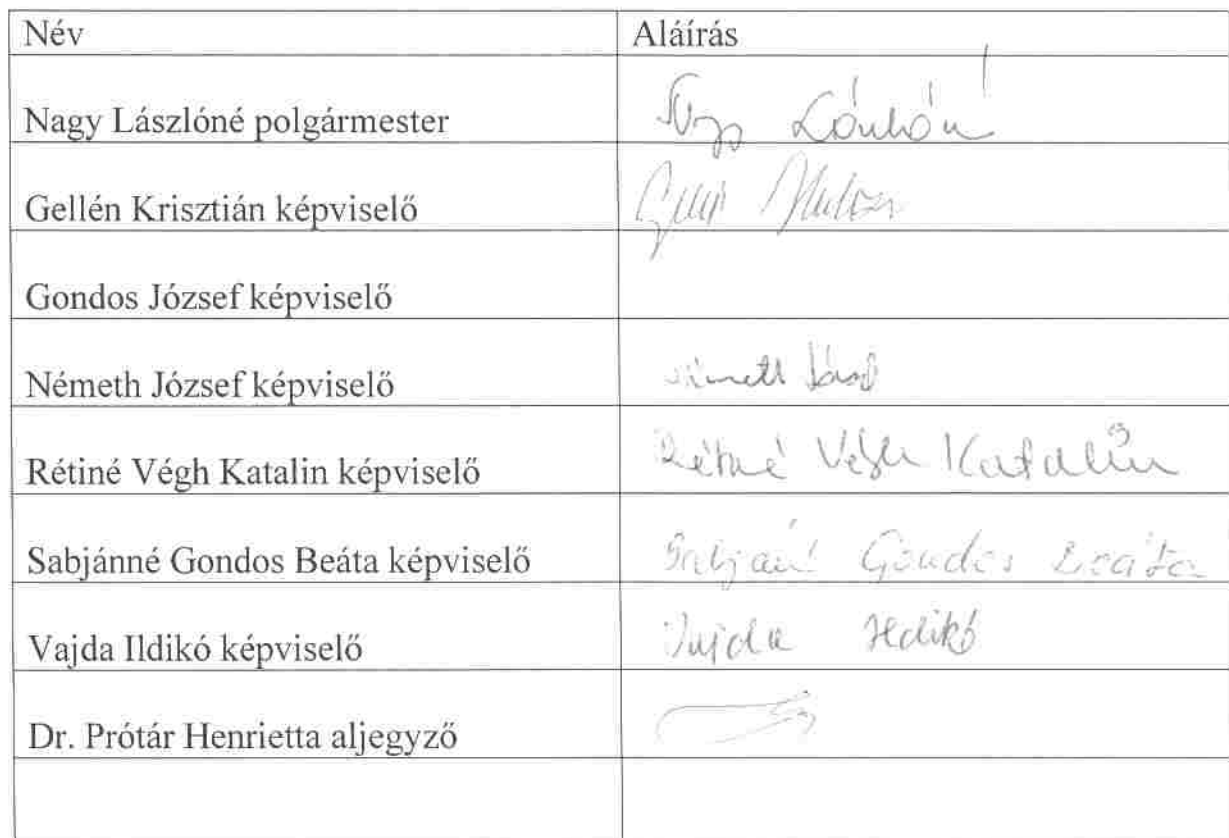 Név Aláírás
Nagy Lászlóné polgármester
Gellén Krisztián képviselő
Gondos József képviselő
Németh József képviselő
Rétiné Végh Katalin képviselő Rétiné Végh Katalin
Sabjánné Gondos Beáta képviselő Sabjánné Gondos Beáta
Vajda Ildikó képviselő Vajda Ildikó
Dr. Prótár Henrietta aljegyző